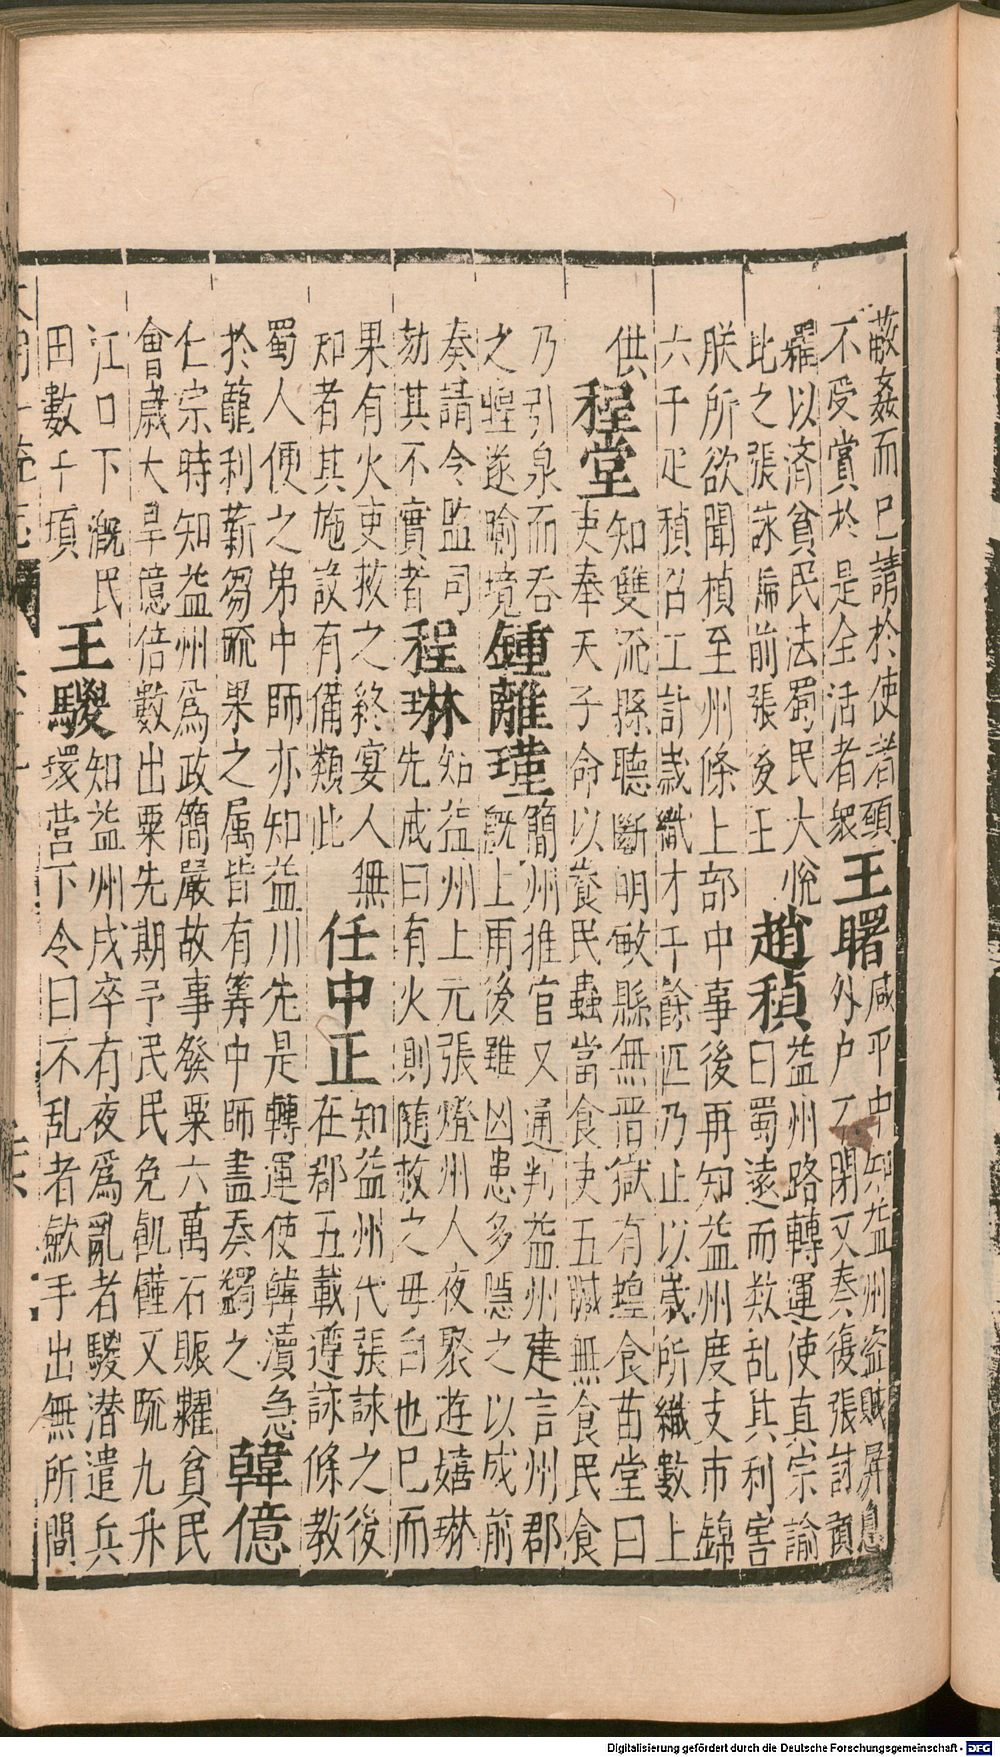 蔽姦而巳請於使者頭
不受賞於是全活者衆
王曙
咸平中知益州盜賊屏息
外户不閉又奏復張詠賣
羅以済貧民法蜀民大悅
比之張詠號前張後王
趙稹
益州路轉運使真宗諭
曰蜀遠而数乱其利害
朕所欲聞稹至州條上部中事後再知益州度支市錦
六千疋稹召工計歲織才千餘匹乃止以歲所織數上
供
程堂
知雙流縣聽斷明敏縣無畱獄有蝗食苗堂曰
吏奉天子命以養民蟲當食吏五臟無食民食
乃引泉而呑
之蝗遂踰境
鍾離瑾
簡州推官又通判益州建言州郡
既上雨後雖凶患多隱之以成前
奏請令監司
劾其不實者
程琳
知益州上元張燈州人夜聚遊嬉琳
先戒曰有火則随救之毋白也巳而
果有火吏救之終宴人無
知者其施設有備類此
任中正
知益州代張詠之後
在郡五載遵詠條教
蜀人便之弟中師亦知益川先是轉運使韓瀆急
於籠利薪芻疏果之属皆有筭中師盡奏蠲之
韓億
仁宗時知益州爲政簡嚴故事發粟六萬石賑糶貧民
會歲大旱億倍數出粟先期予民民免飢饉又疏九升
江口下溉民
田數千頃
王騣
知益州戍卒有夜爲亂者騣潜遣兵
環營下令曰不乱者歛手出無所問
Digitalisierung gefördert durch die Deutsche Forschungsgemeinschaft - DFG